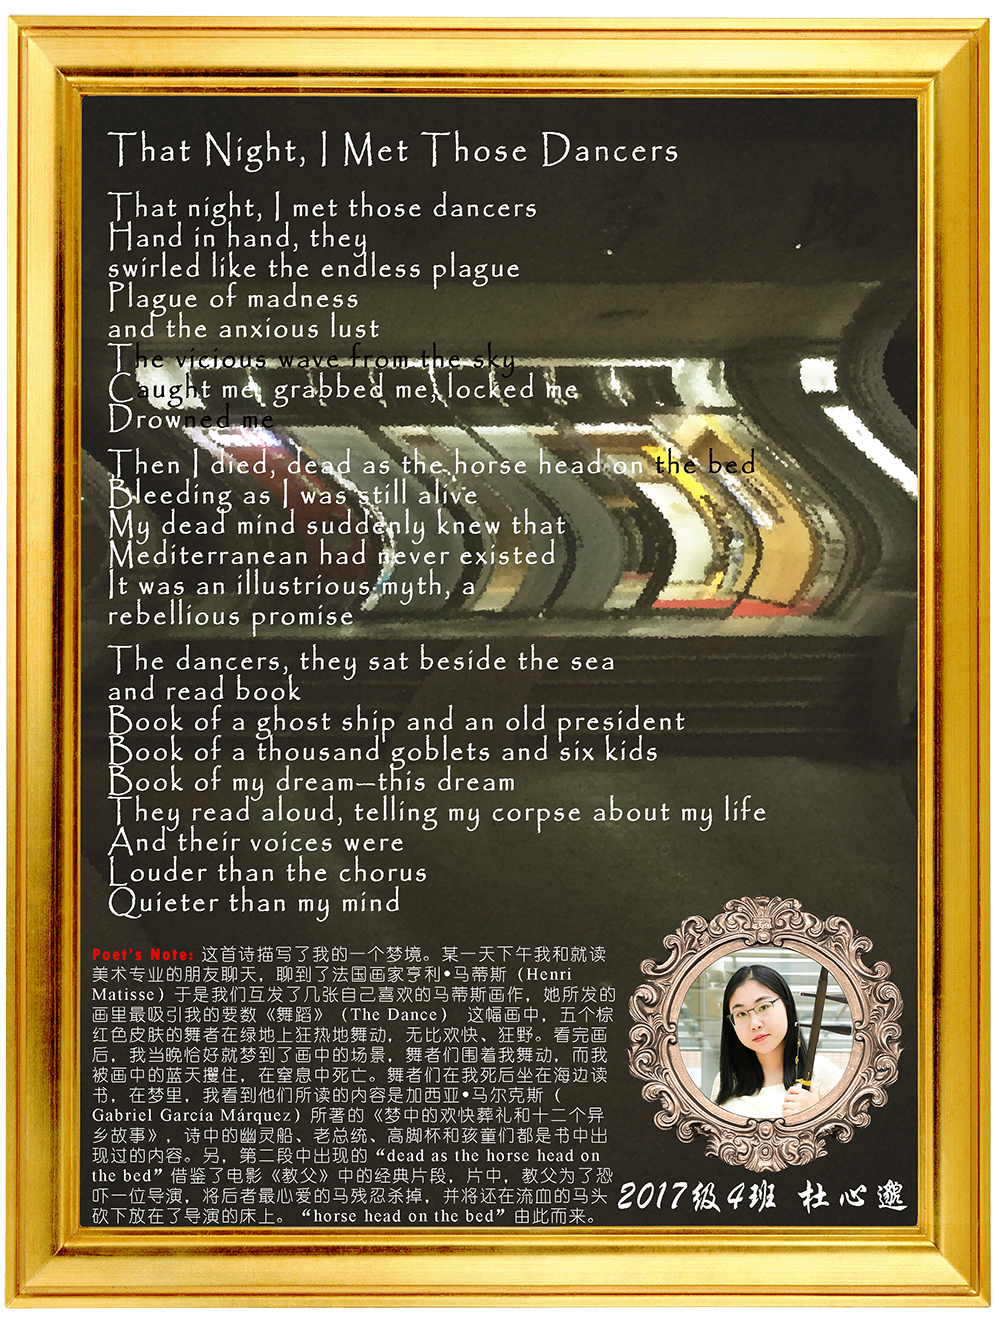 That Night, I Met Those Dancers
That night, I met those dancers
Hand in hand, they
swirled like the endless plague
Plague of madness
and the anxious lust
The vicious wave from the sky
Caught me, grabbed me, locked me
Drowned me
Then I died, dead as the horse head on the bed
Bleeding as I was still alive
My dead mind suddenly knew that
Mediterranean had never existed
It was an illustrious myth, a
rebellious promise
The dancers, they sat beside the sea
and read book
Book of a ghost ship and an old president
Book of a thousand goblets and six kids
Book of my dream—this dream
They read aloud, telling my corpse about my life
And their voices were
Louder than the chorus
Quieter than my mind
Poet's Note: 这首诗描写了我的一个梦境。某一天下午我和就读
美术专业的朋友聊天，聊到了法国画家亨利•马蒂斯（Henri
Matisse）于是我们互发了几张自己喜欢的马蒂斯画作，她所发的
画里最吸引我的要数《舞蹈》（The Dance） 这幅画中，五个棕
红色皮肤的舞者在绿地上狂热地舞动，无比欢快、狂野。看完画
后，我当晚恰好就梦到了画中的场景，舞者们围着我舞动，而我
被画中的蓝天攫住，在窒息中死亡。舞者们在我死后坐在海边读
书，在梦里，我看到他们所读的内容是加西亚•马尔克斯（
Gabriel García Márquez）所著的《梦中的欢快葬礼和十二个异
乡故事》，诗中的幽灵船、老总统、高脚杯和孩童们都是书中出
现过的内容。另，第二段中出现的“dead as the horse head on
the bed”借鉴了电影《教父》中的经典片段，片中，教父为了恐
吓一位导演，将后者最心爱的马残忍杀掉，并将还在流血的马头
砍下放在了导演的床上。“horse head on the bed”由此而来。
2017级4班 杜心邈